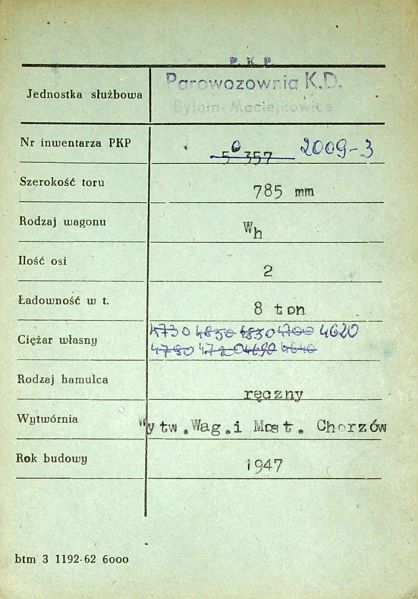 P.K.P.
Parowozownia K.D.
Jednostka służbowa
Bytom-Maciejkowice
Nr inwentarza PKP 50357 2009-3
Szerokość toru 785 mm
Rodzaj wagonu Wh
Ilość osi 2
Ładowność w t. 8 ton
4730 4850 4830 4700 4620
Ciężar własny
4780 4720 4690 4640
Rodzaj hamulca ręczny
Wytwórnia Wytw.Wag.i Most. Chorzów
Rok budowy 1947
btm 3 1192-62 6000